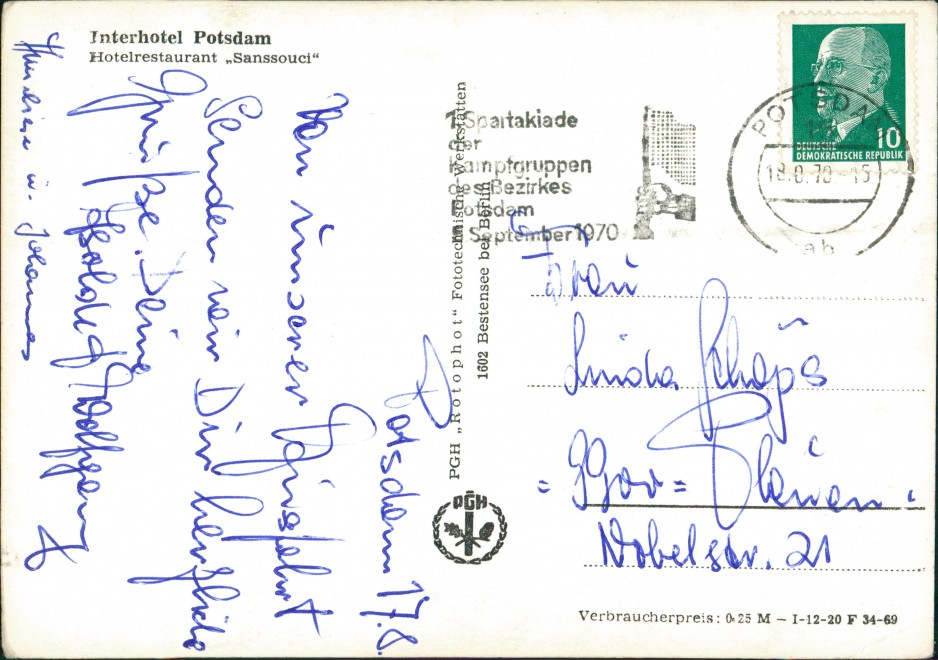 Interhotel Potsdam
Hotelrestaurant „Sanssouci“
Potsdam 17.8.
Von unserer
Senden wir Dir herzliche
Grüße. Deine
Isolde & Wolfgang
u. Johannes
PGH „Rotophot“ Fototechnische Werkstätten
1602 Bestensee bei Berlin
PGH
1. Spartakiade
der
Kampfgruppen
des Bezirkes
Potsdam
September 1970
POTSDAM
ab
10
DEUTSCHE
DEMOKRATISCHE REPUBLIK
Frau
Linda Schöps
= 990 = Plauen.
Nobelstr. 21
Verbraucherpreis: 0,25 M — I-12-20 F 34-69